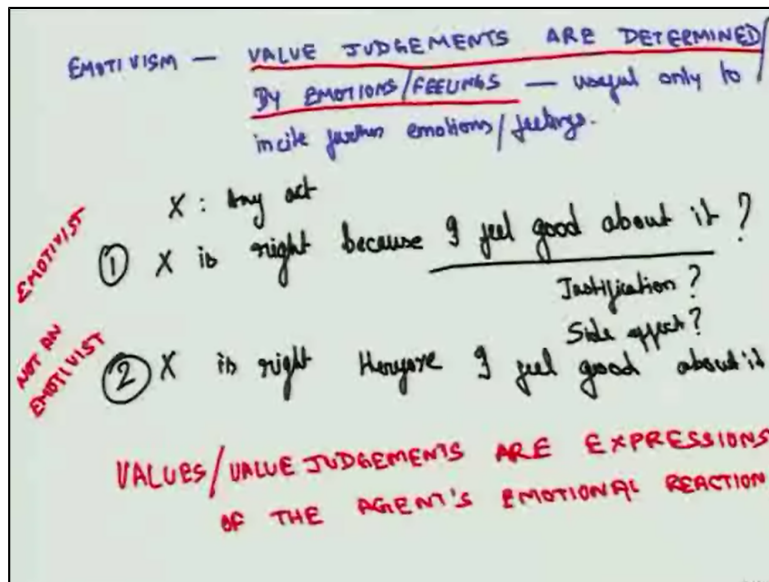 EMOTIVISM — VALUE JUDGEMENTS ARE DETERMINED
BY EMOTIONS/FEELINGS — useful only to
incite further emotions/feelings.
X : Any act
EMOTIVIST
① X is right because I feel good about it ?
Justification ?
Side effect ?
NOT AN
EMOTIVIST
② X is right therefore I feel good about it
VALUES/VALUE JUDGEMENTS ARE EXPRESSIONS
OF THE AGENT'S EMOTIONAL REACTION